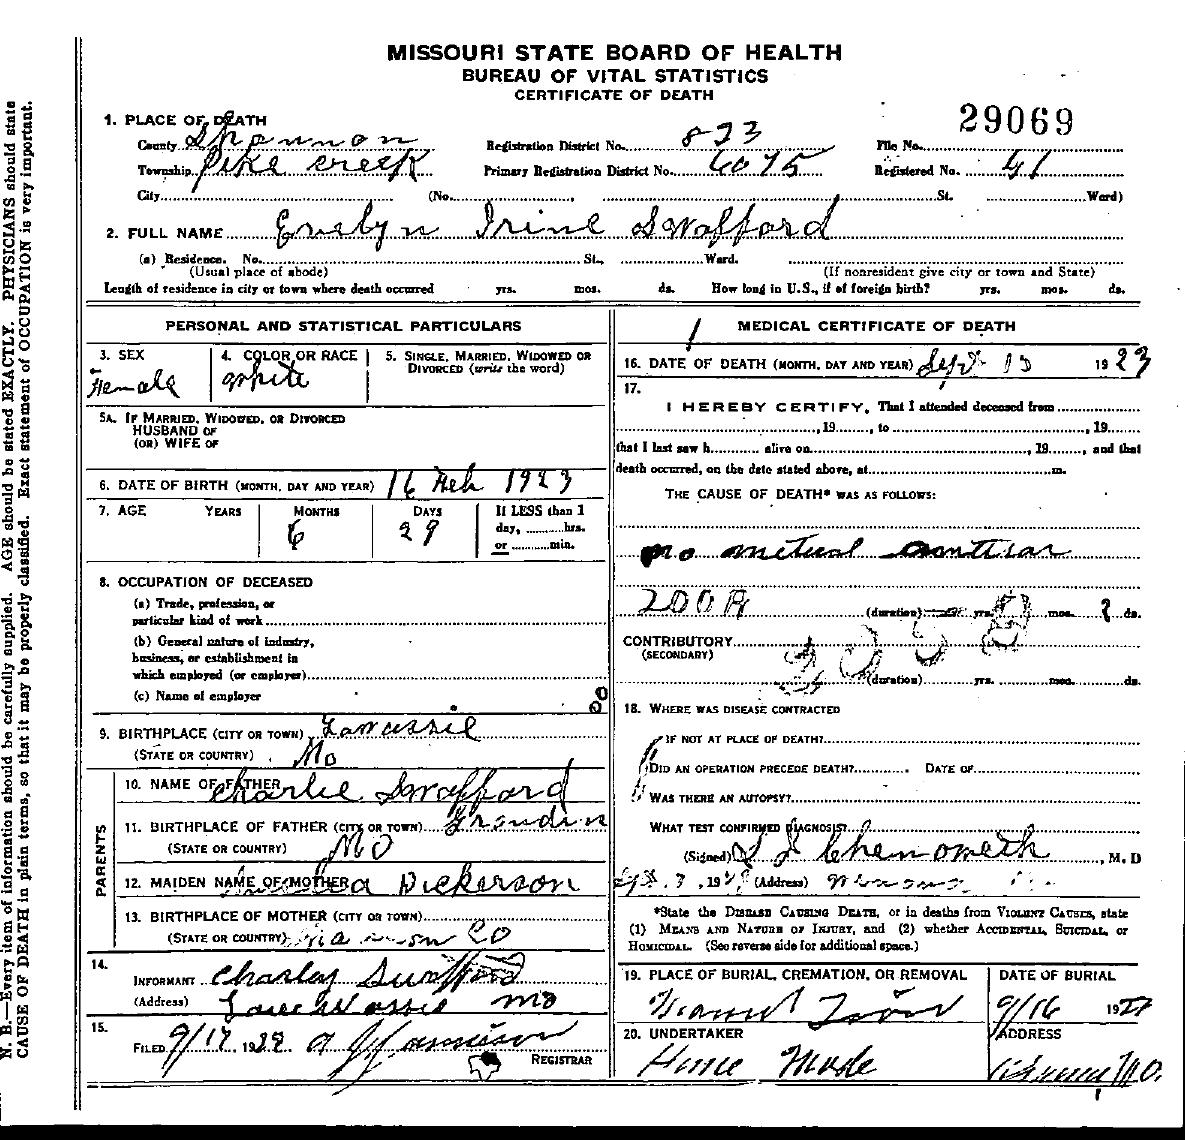 MISSOURI STATE BOARD OF HEALTH
BUREAU OF VITAL STATISTICS
CERTIFICATE OF DEATH
29069
1. PLACE OF DEATH
County Shannon Registration District No. 823 File No.
Township Pike Creek Primary Registration District No. 6075 Registered No. 41
City (No. St. Ward)
2. FULL NAME Evelyn Irine Swafford
(a) Residence. No. St., Ward.
(Usual place of abode) (If nonresident give city or town and State)
Length of residence in city or town where death occurred yrs. mos. ds. How long in U.S., if of foreign birth? yrs. mos. ds.
PERSONAL AND STATISTICAL PARTICULARS
3. SEX
Female
4. COLOR OR RACE
White
5. SINGLE, MARRIED, WIDOWED OR
DIVORCED (write the word)
5A. IF MARRIED, WIDOWED, OR DIVORCED
HUSBAND OF
(OR) WIFE OF
6. DATE OF BIRTH (MONTH, DAY AND YEAR) 16 Feb 1923
7. AGE YEARS MONTHS DAYS If LESS than 1
6 29 day, hrs.
or min.
8. OCCUPATION OF DECEASED
(a) Trade, profession, or
particular kind of work
(b) General nature of industry,
business, or establishment in
which employed (or employer)
(c) Name of employer
9. BIRTHPLACE (CITY OR TOWN)
(STATE OR COUNTRY) Mo
PARENTS
10. NAME OF FATHER Charlie Swafford
11. BIRTHPLACE OF FATHER (CITY OR TOWN) Grandin
(STATE OR COUNTRY) MO
12. MAIDEN NAME OF MOTHER Dickerson
13. BIRTHPLACE OF MOTHER (CITY OR TOWN)
(STATE OR COUNTRY) Co
14.
INFORMANT Charley Swafford
(Address) Mo
15.
FILED 9/17 19 REGISTRAR
MEDICAL CERTIFICATE OF DEATH
16. DATE OF DEATH (MONTH, DAY AND YEAR) Sept 15 1923
17.
I HEREBY CERTIFY, That I attended deceased from
, 19 , to , 19
that I last saw h alive on , 19 , and that
death occurred, on the date stated above, at m.
THE CAUSE OF DEATH* WAS AS FOLLOWS:
no
(duration) yrs. mos. ds.
CONTRIBUTORY
(SECONDARY)
(duration) yrs. mos. ds.
18. WHERE WAS DISEASE CONTRACTED
IF NOT AT PLACE OF DEATH?
DID AN OPERATION PRECEDE DEATH? DATE OF
WAS THERE AN AUTOPSY?
WHAT TEST CONFIRMED DIAGNOSIS?
(Signed) , M. D
, 19 (Address)
*State the DISEASE CAUSING DEATH, or in deaths from VIOLENT CAUSES, state
(1) MEANS AND NATURE OF INJURY, and (2) whether ACCIDENTAL, SUICIDAL, or
HOMICIDAL. (See reverse side for additional space.)
19. PLACE OF BURIAL, CREMATION, OR REMOVAL DATE OF BURIAL
9/16 19
20. UNDERTAKER ADDRESS
Home Made
N. B.—Every item of information should be carefully supplied. AGE should be stated EXACTLY. PHYSICIANS should state
CAUSE OF DEATH in plain terms, so that it may be properly classified. Exact statement of OCCUPATION is very important.